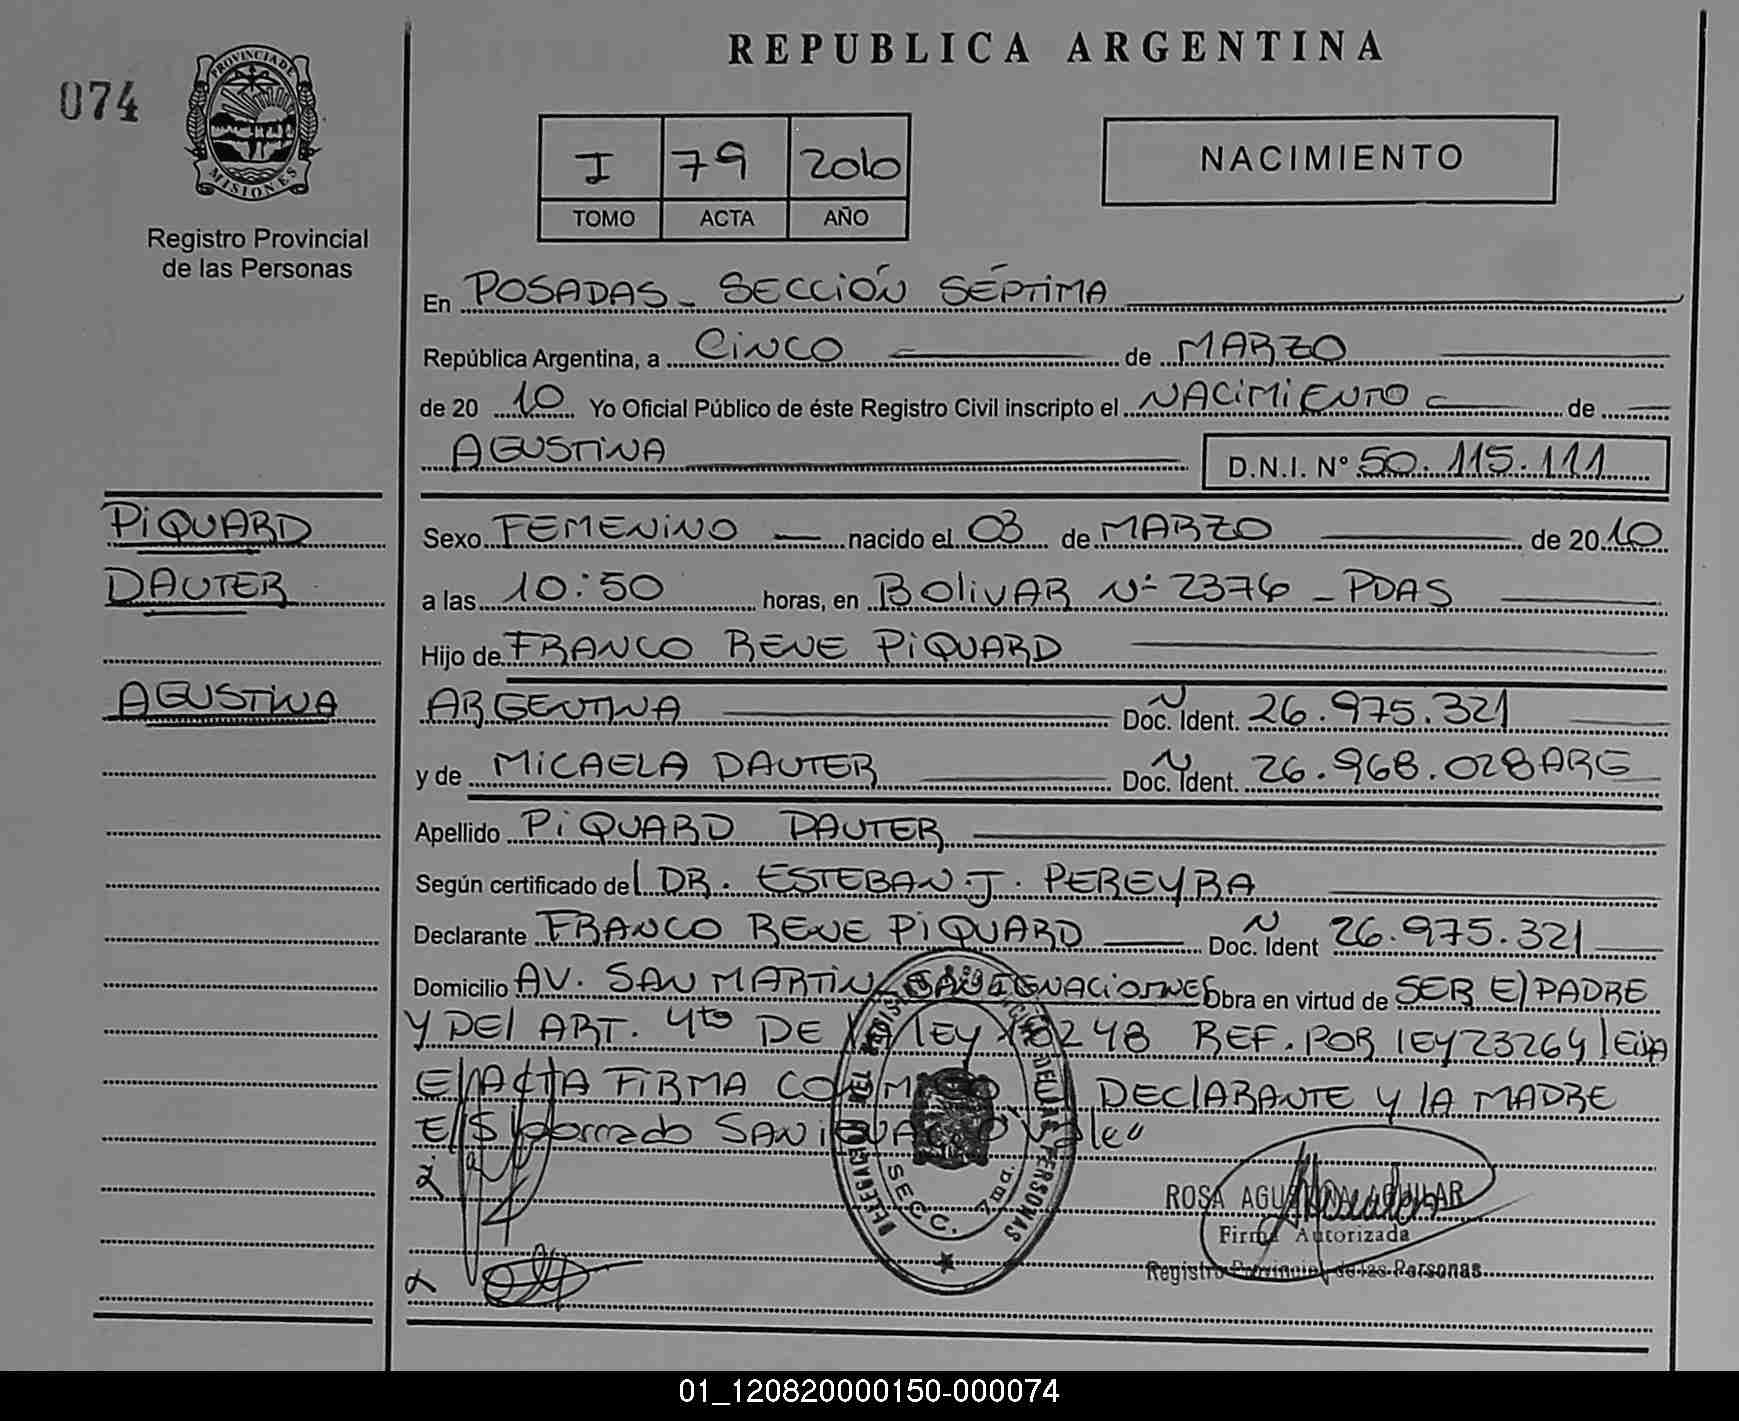 REPUBLICA ARGENTINA
074
PROVINCIA DE MISIONES
Registro Provincial
de las Personas
I 79 2010
TOMO ACTA AÑO
NACIMIENTO
En POSADAS - SECCIÓN SÉPTIMA
República Argentina, a CINCO de MARZO
de 20 10 Yo Oficial Público de éste Registro Civil inscripto el NACIMIENTO de
AGUSTINA D.N.I. N° 50.115.111
PIQUARD
DAUTER
AGUSTINA
Sexo FEMENINO nacido el 03 de MARZO de 20 10
a las 10:50 horas, en BOLIVAR Nº 2376 - PDAS
Hijo de FRANCO RENE PIQUARD
ARGENTINA Doc. Ident. N 26.975.321
y de MICAELA DAUTER Doc. Ident. N 26.968.028 ARG
Apellido PIQUARD DAUTER
Según certificado del DR. ESTEBAN J. PEREYRA
Declarante FRANCO RENE PIQUARD Doc. Ident N 26.975.321
Domicilio AV. SAN MARTIN Obra en virtud de SER El PADRE
Y DEl ART. 4to DE LEY 18248 REF. POR lEY 23264 lEidA
El ACTA FIRMA DECLARANTE Y lA MADRE
El S/borrado
SECC. 7ma.
ROSA AGUSTINA AGUILAR
Firma Autorizada
Registro Provincial de las Personas
01_120820000150-000074